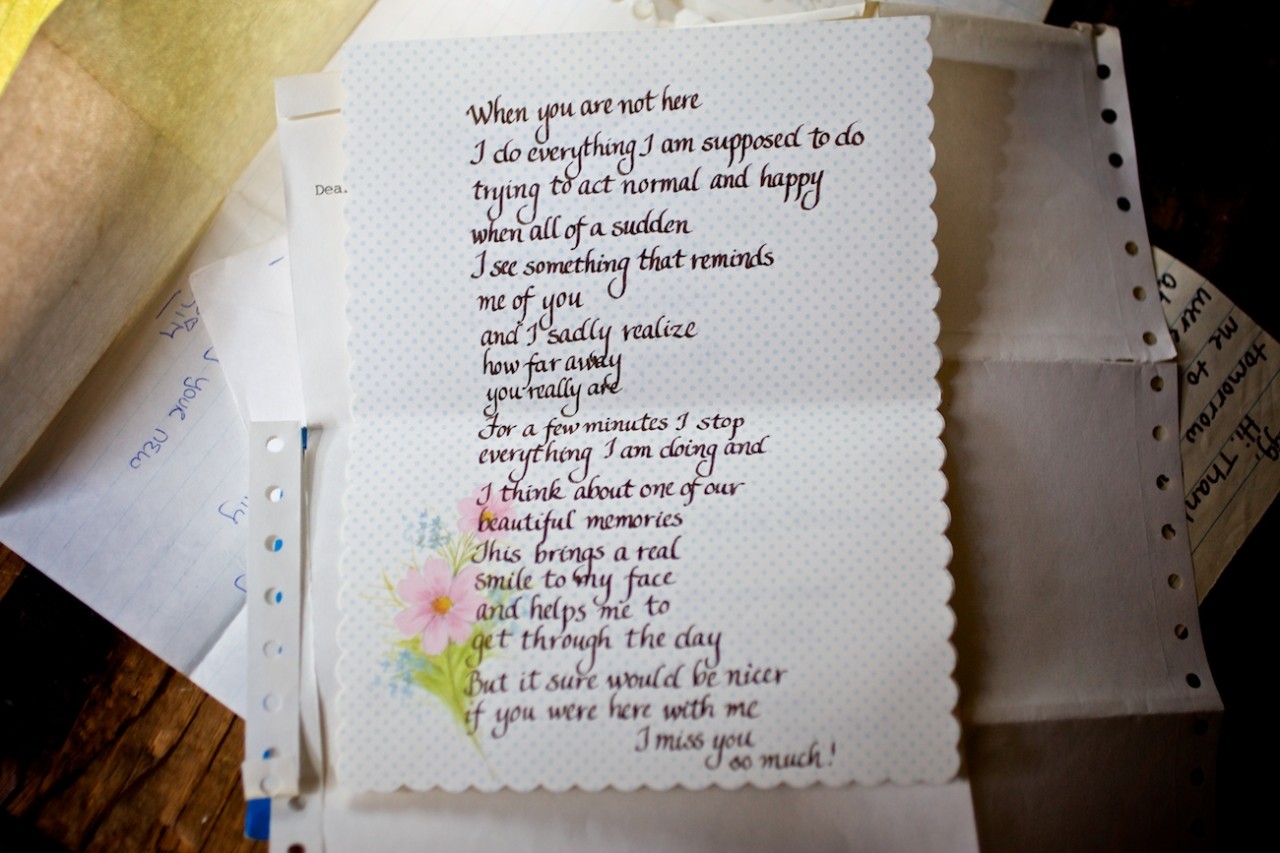 When you are not here
I do everything I am supposed to do
trying to act normal and happy
when all of a sudden
I see something that reminds
me of you
and I sadly realize
how far away
you really are
For a few minutes I stop
everything I am doing and
I think about one of our
beautiful memories
This brings a real
smile to my face
and helps me to
get through the day
But it sure would be nicer
if you were here with me
I miss you
so much!
Dea.
your new
tomorrow
me to
Hi. Than